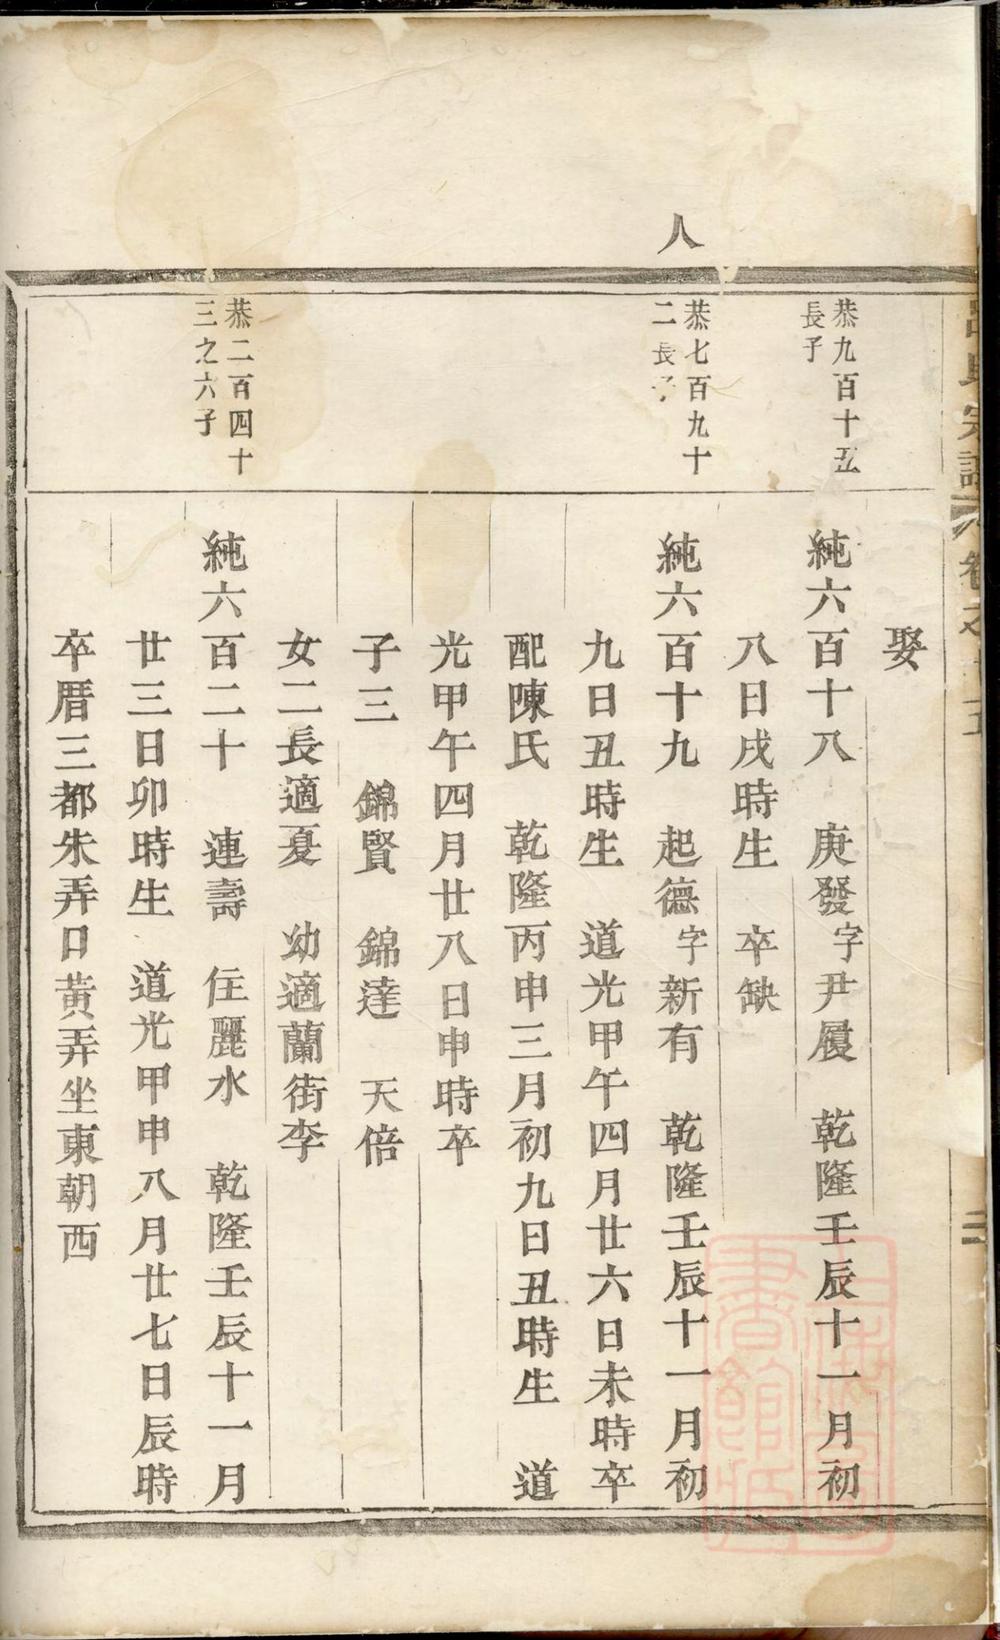 人
娶
恭九百十五
長子
純六百十八　庚發字尹履　乾隆壬辰十一月初
八日戌時生　卒缺
恭七百九十
二長子
純六百十九　起德字新有　乾隆壬辰十一月初
九日丑時生　道光甲午四月廿六日未時卒
配陳氏　乾隆丙申三月初九日丑時生　道
光甲午四月廿八日申時卒
子三　錦賢　錦達　天倍
女二長適夏　幼適蘭街李
恭二百四十
三之六子
純六百二十　連壽　住麗水　乾隆壬辰十一月
廿三日卯時生　道光甲申八月廿七日辰時
卒厝三都朱弄口黃弄坐東朝西